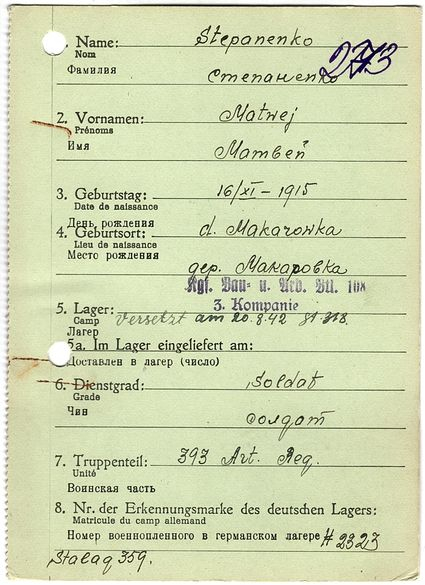 1. Name: Stepanenko
Nom
273
Фамилия Степаненко
2. Vornamen: Matwej
Prénoms
Имя Матвей
3. Geburtstag: 16/XI - 1915
Date de naissance
День рождения
4. Geburtsort: d. Makarowka
Lieu de naissance
Место рождения дер. Макаровка
Kgf. Bau- u. Arb. Btl. 108
3. Kompanie
5. Lager: versetzt am 20.8.42 St 318.
Camp
Лагер
5a. Im Lager eingeliefert am:
Доставлен в лагер (число)
6. Dienstgrad: Soldat
Grade
Чин солдат
7. Truppenteil: 393 Art. Reg.
Unité
Воинская часть
8. Nr. der Erkennungsmarke des deutschen Lagers:
Matricule du camp allemand
Номер военнопленного в германском лагере # 2323
Stalag 359.